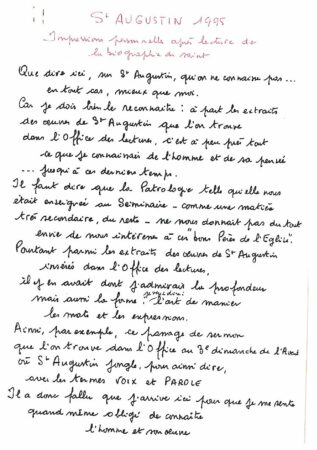 St AUGUSTIN 1995
Impressions personnelles après lecture de
la biographie du saint
Que dire ici, sur St Augustin, qu'on ne connaisse pas...
en tout cas, mieux que moi.
Car je dois bien le reconnaître : à part les extraits
des œuvres de St Augustin que l'on trouve
dans l'Office des lectures, c'est à peu près tout
ce que je connaissais de l'homme et de sa pensée
... jusqu'à ces derniers temps.
Il faut dire que la Patrologie telle qu'elle nous
était enseignée au Séminaire - comme une matière
très secondaire, du reste - ne nous donnait pas du tout
envie de nous intéresser à ces "bons Pères de l'Eglise".
Pourtant parmi les extraits des œuvres de St Augustin
insérés dans l'Office des lectures,
il y en avait dont j'admirais la profondeur
mais aussi la forme : l'art de manier
les mots et les expressions.
Ainsi, par exemple, ce passage de sermon
que l'on trouve dans l'Office au 3e dimanche de l'Avent
où St Augustin jongle, pour ainsi dire,
avec les termes VOIX et PAROLE
Il a donc fallu que j'arrive ici pour que je me sente
quand même obligé de connaître
l'homme et son œuvre